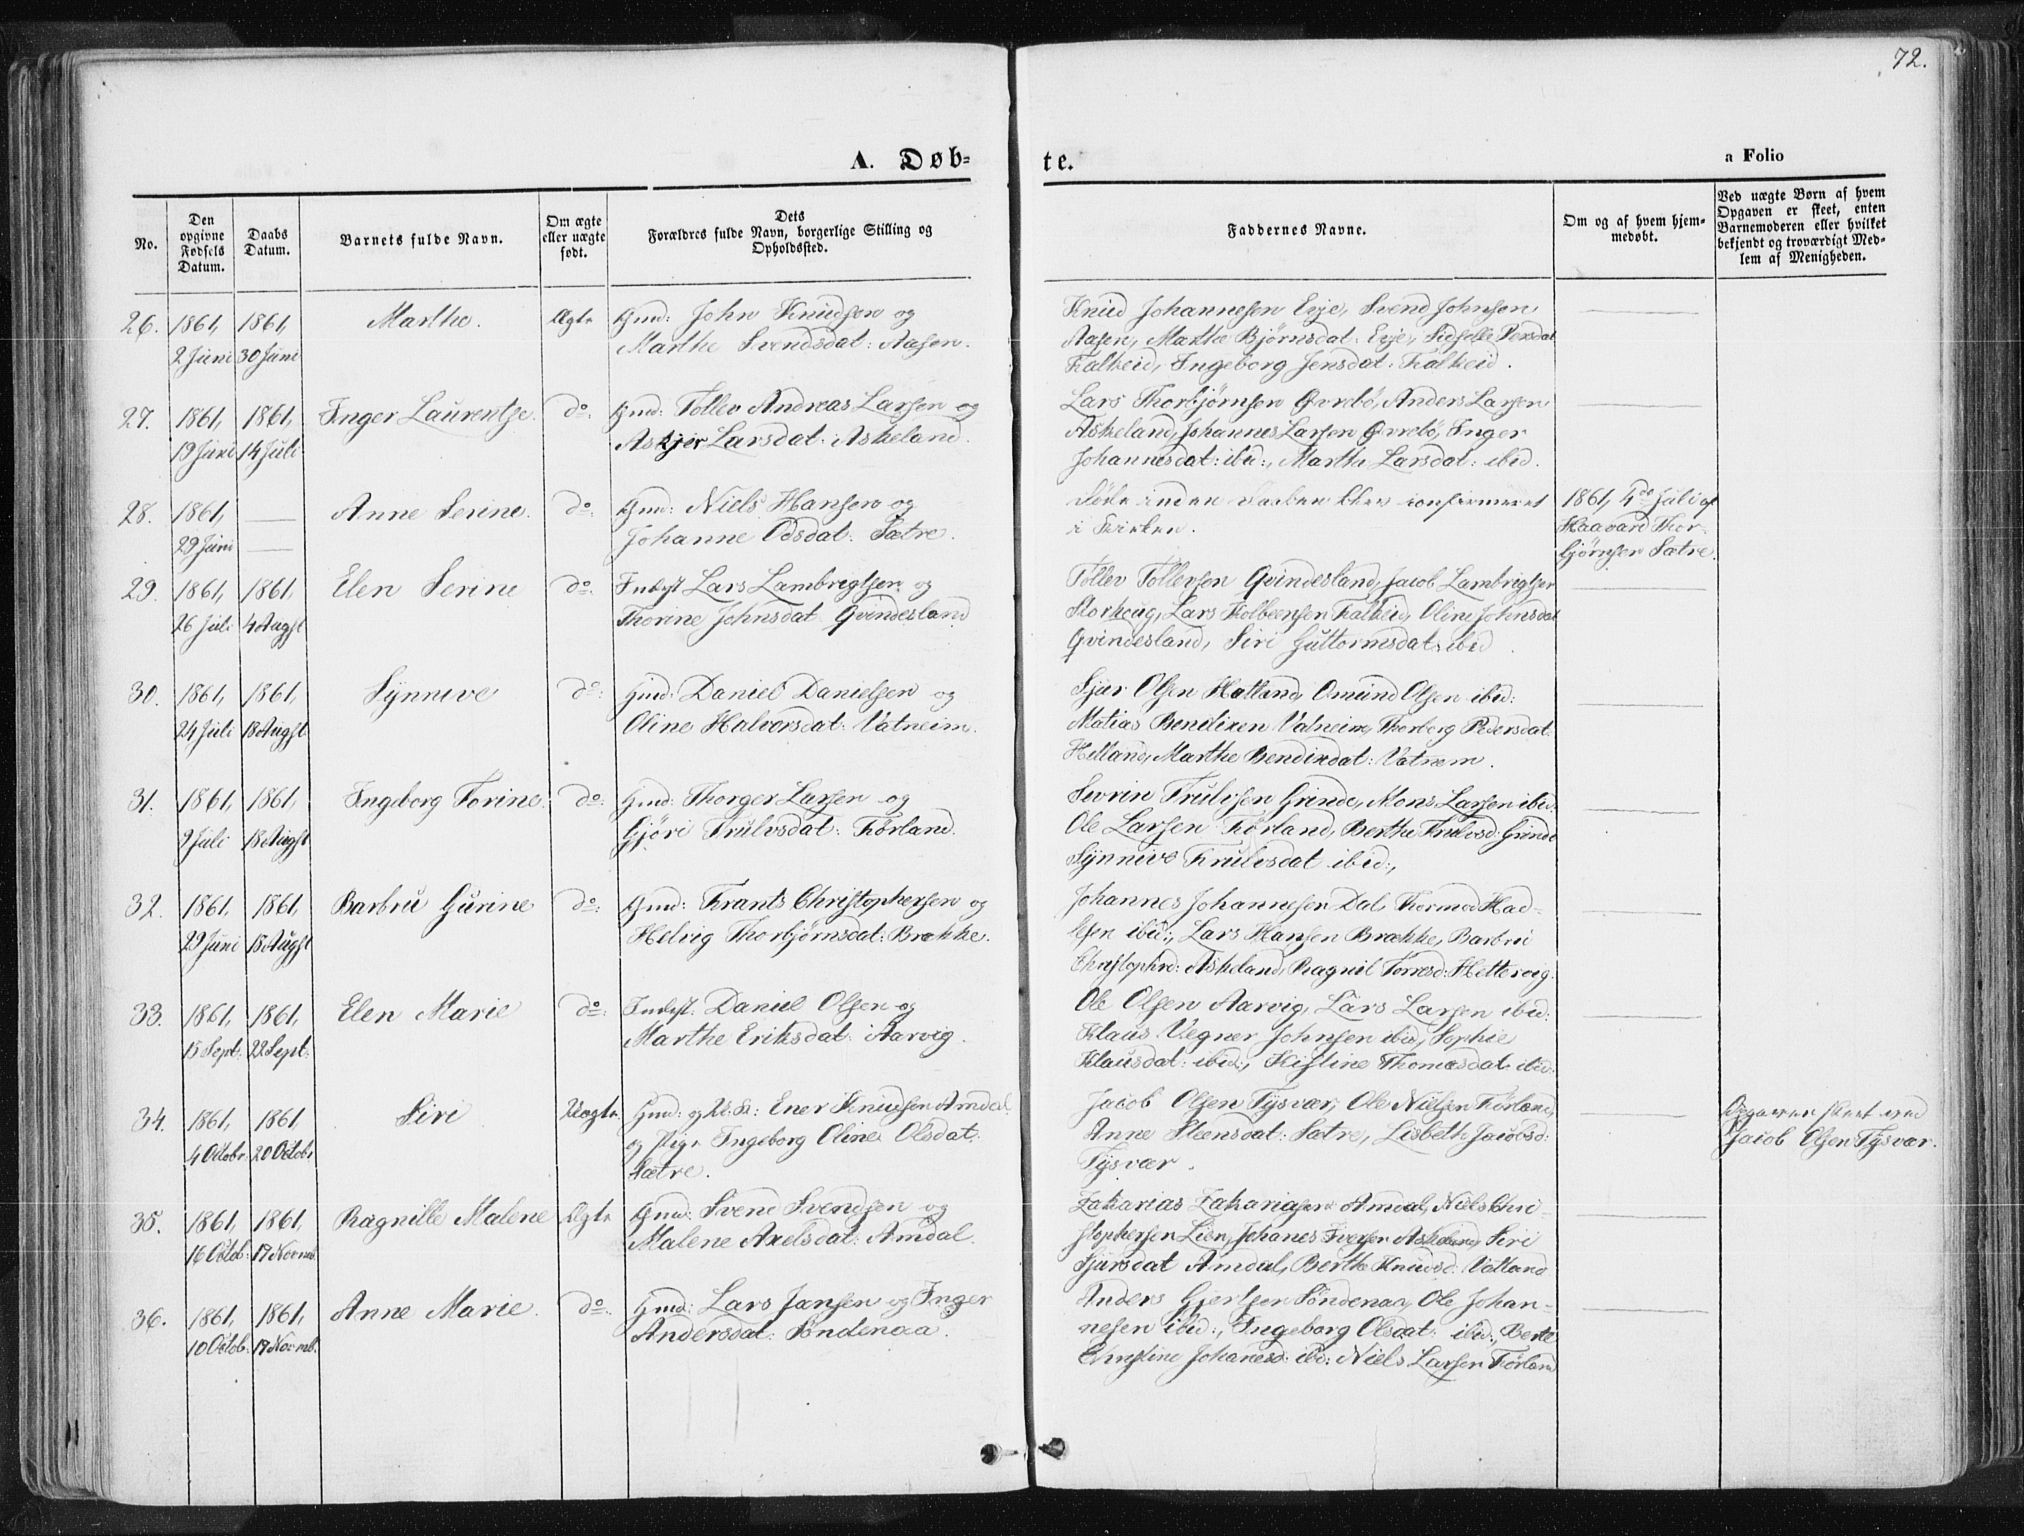 72.
A. Døb-
te.
a Folio
No.
Den opgivne Fødsels Datum.
Daabs Datum.
Barnets fulde Navn.
Om ægte eller uægte født.
Dets Forældres fulde Navn, borgerlige Stilling og Opholdssted.
Faddernes Navne.
Om og af hvem hjemmedøbt.
Ved uægte Børn af hvem Opgaven er skeet, enten Barnemoderen eller hvilket bekjendt og troværdigt Medlem af Menigheden.
26. 1861, 1861, Marthe. Ægte Gmd: John Knudsen og
2 Juni 30 Juni Marthe Svendsdat: Aasen.
Knud Johannesen Evje, Svend Johnsen
Aasen, Marthe Bjørnsdat: Evje, Sidselle Persdat
Falkeid, Ingeborg Jensdat: Falkeid.
27. 1861, 1861, Inger Laurentse. do. Gmd: Tollev Andreas Larsen og
19 Juni 14 Juli Larsdat: Askeland.
Lars Thorbjørnsen Øvrebø, Anders Larsen
Askeland, Johannes Larsen Øvrebø, Inger
Johannesdat: ibid:, Marthe Larsdat: ibid.
28. 1861, Anne Serine. do. Gmd: Niels Hansen og
29 Juni Johanne Odsdat: Sætre.
Døde inden Daaben blev confirmeret
i Kirken.
1861, 4de Juli af
Haavard Thor-
bjørnsen Sætre.
29. 1861, 1861, Elen Serine do. Inderst Lars Lambregtsen og
26 Juli 4 Augst Thorine Johnsdat Qvindesland
Tollev Tollevsen Qvindesland, Jacob Lambrigtsen
Storhaug, Lars Kolbeensen Falkeid, Oline Johnsdat
Qvindesland, Siri Guttormsdat: ibid.
30. 1861, 1861, Synneve do: Gmd: Daniel Danielsen og
24 Juli 18 Augst Oline Halvorsdat: Vatneim.
Sjur Olsen Hetland, Omund Olsen ibid:
Matias Bendixen Vatneim, Thorborg Pedersdat:
Hetland, Marthe Bendixdat: Vatnem.
31. 1861, 1861, Ingeborg Torine. do: Gmd: Thorger Larsen og
9 Juli 18 Augst Gjøri Trulvsdat: Førland.
Sevrin Trulvsen Grinde, Mons Larsen ibid.
Ole Larsen Førland, Berthe Trulvsd: Grinde
Synnive Trulvsdat ibid:,
32. 1861, 1861, Barbru Gurine do: Gmd: Frants Christophersen og
29 Juni 18 Augst Helvig Thorbjørnsdat: Brække.
Johannes Johannesen Dal, Thormod Had-
lesen ibid:, Lars Hansen Brække, Barbru
Christophrd: Askeland, Ragnil Torresd: Hettervig.
33. 1861, 1861, Elen Marie do: Inderst: Daniel Olsen og
15 Sept: 22 Sept: Marthe Eriksdat: Aarvig.
Ole Olsen Aarvig, Lars Larsen ibid:
Klaus Vegner Johnsen ibid, Sophie
Klausdat: ibid:, Kistine Thomasdat ibid:
34. 1861, 1861 Siri Uægte. Gmd: og Ener Knudsen Amdal
4 Octobr 20 Octobr og Pige Ingeborg Oline Olsdat:
Sætre.
Jacob Olsen Tysvær, Ole Nielsen Førland,
Anne Steensdat: Sætre, Lisbeth Jacobsd:
Tysvær.
Opgaven skeet ved
Jacob Olsen Tysvær.
35. 1861, 1861, Ragnille Malene Ægte Gmd: Svend Svendsen og
16 Octob: 17 Novmb. Malene Axelsdat: Amdal.
Zakarias Zakariasen Amdal, Niels Chri-
stophersen Lien, Johanes Iversen Askeland, Siri
Sjursdat Amdal, Berthe Knudsd: Vatland
36. 1861, 1861, Anne Marie. do. Gmd: Lars Jansen og Inger
10 Octob: 17 Novmb. Andersdat: Søndenaa.
Anders Gjertsen Søndenaa, Ole Johan-
nesen ibid:, Ingeborg Olsdat: ibid:, Berte
Christine Johanesd: ibid: Niels Larsen Førland